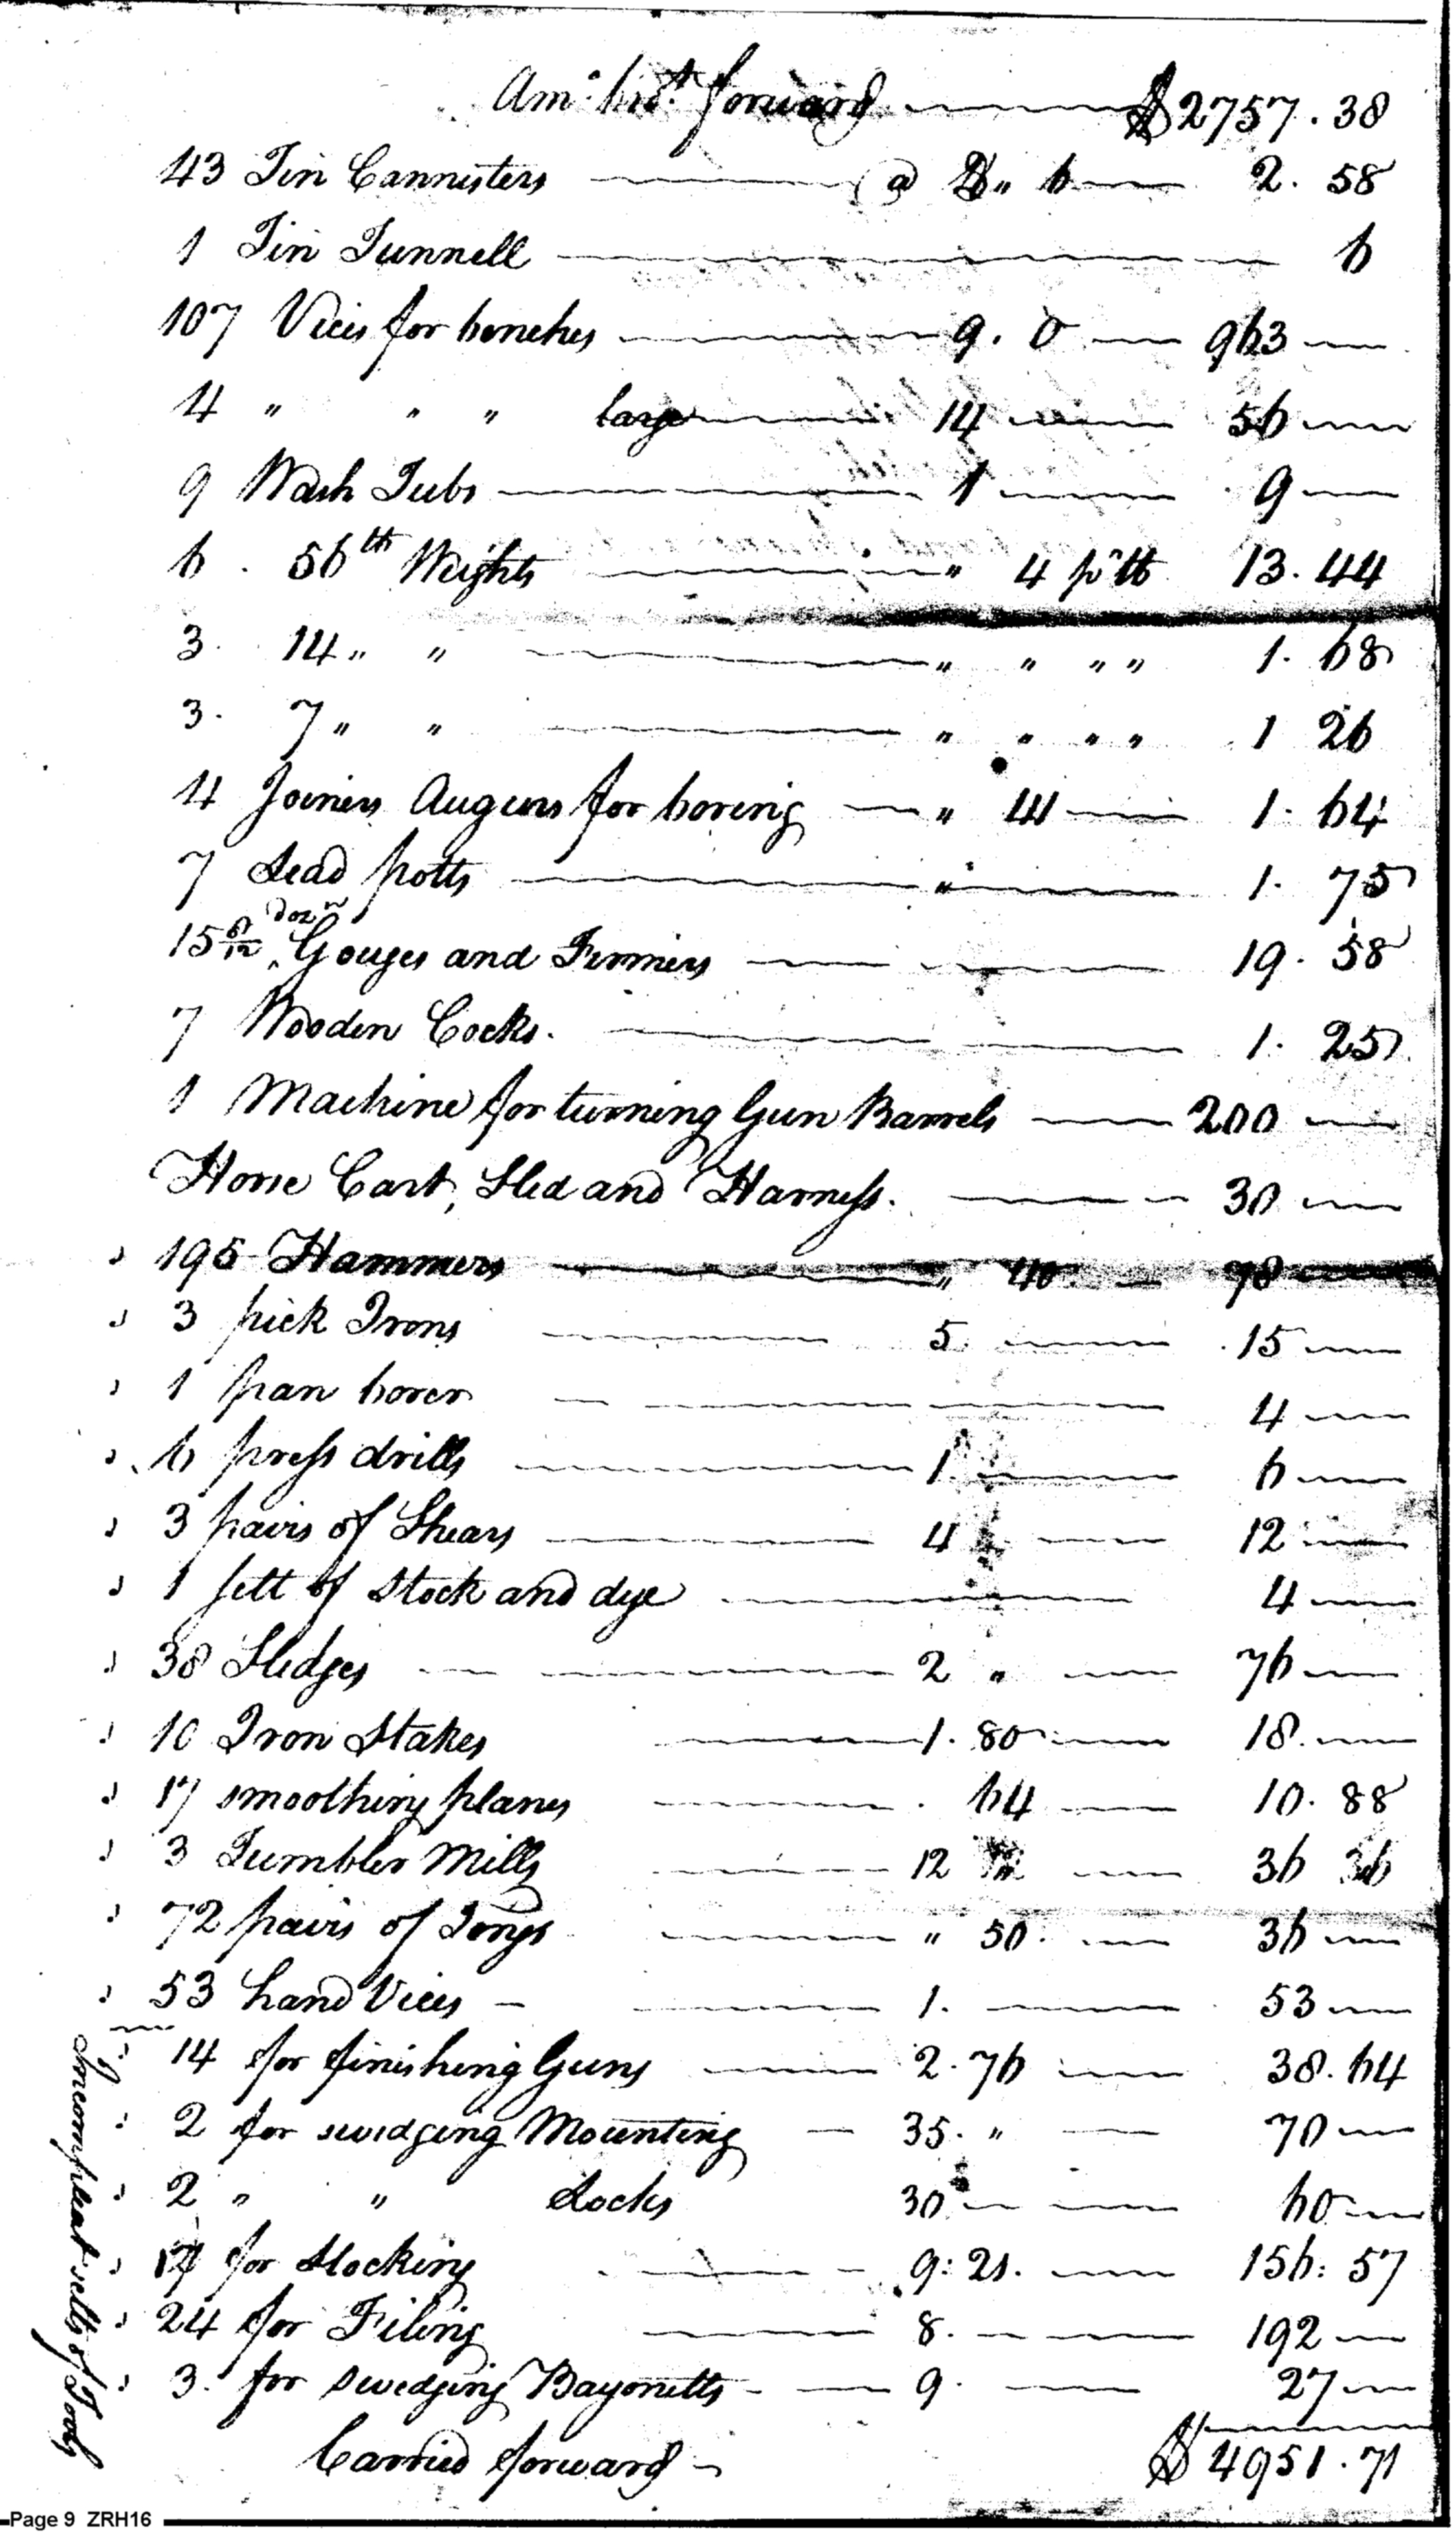 Am.o bro.t forward $2757.38
43 Tin Cannisters @ $ " 6 2.58
1 Tin Tunnell 6
107 Vices for benches 9.0 963
4 " " " large 14 56
9 Wash Tubs 1 9
6. 56 lb Weights " 4 pr lb 13.44
3. 14 " " " " " " 1.68
3. 7 " " " " " " 1 26
4 Joiners Augurs for boring " 41 1.64
7 Lead potts " 1.75
15 8/12 dozn Gouges and Firmers 19.58
7 Wooden Cocks. 1.25
1 Machine for turning Gun Barrels 200
Horse Cart, Sled and Harness. 30
195 Hammers " 40 78
3 pick Irons 5 15
1 pan borer 4
6 press drills 1 6
3 pairs of Shears 4 12
1 sett of Stock and dye 4
38 Sledges 2 " 76
10 Iron Stakes 1.80 18
17 smoothing planes .64 10.88
3 Tumbler Mills 12 36 36
72 pairs of Tongs " 50. 36
53 hand Vices 1. 53
Incompleat setts of Tools
14 for finishing Guns 2.76 38.64
2 for swedging Mounting 35. " 70
2 " " Locks 30 60
17 for Stocking 9:21. 156:57
24 for Filing 8. 192
3. for Swedging Bayonetts 9. 27
Carried forward $4951.71
Page 9 ZRH16